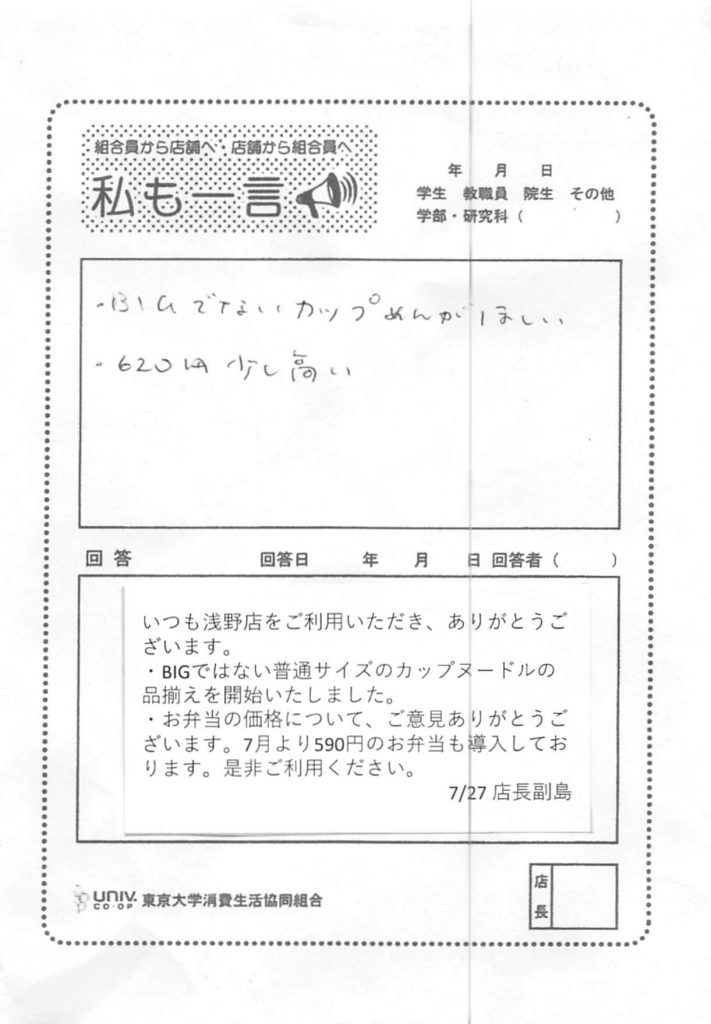 組合員から店舗へ・店舗から組合員へ
私も一言
年 月 日
学生 教職員 院生 その他
学部・研究科（ ）
・BIGでないカップめんがほしい
・620円 少し高い
回答 回答日 年 月 日 回答者（ ）
いつも浅野店をご利用いただき、ありがとうご
ざいます。
・BIGではない普通サイズのカップヌードルの
品揃えを開始いたしました。
・お弁当の価格について、ご意見ありがとうご
ざいます。7月より590円のお弁当も導入してお
ります。是非ご利用ください。
7/27 店長副島
店長
UNIV. CO-OP 東京大学消費生活協同組合